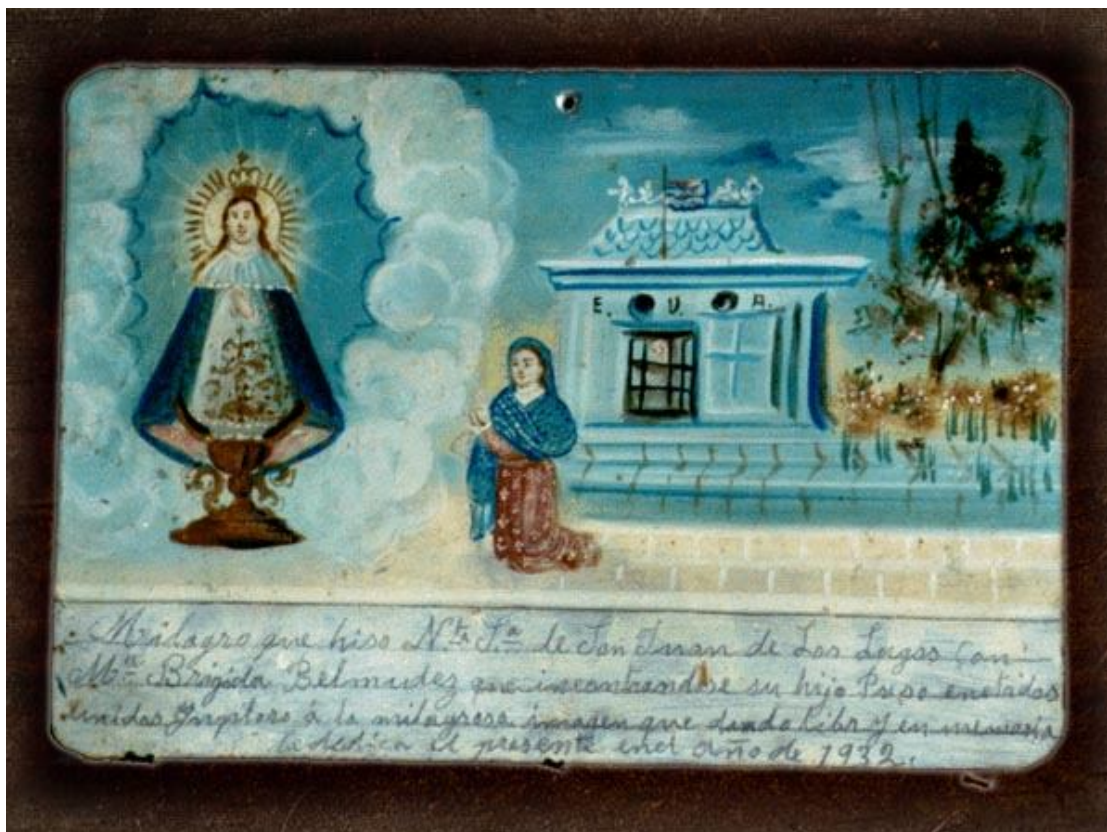 E. U. A.
Milagro que hiso Nta. Sra. de San Juan de Los Lagos con
Ma. Brigida Belmudez que incontrandose su hijo Preso enetados
unidos Ynploro á la milagrosa imagen que dando libr y en memoria
le dedica el presente en el Año de 1932.